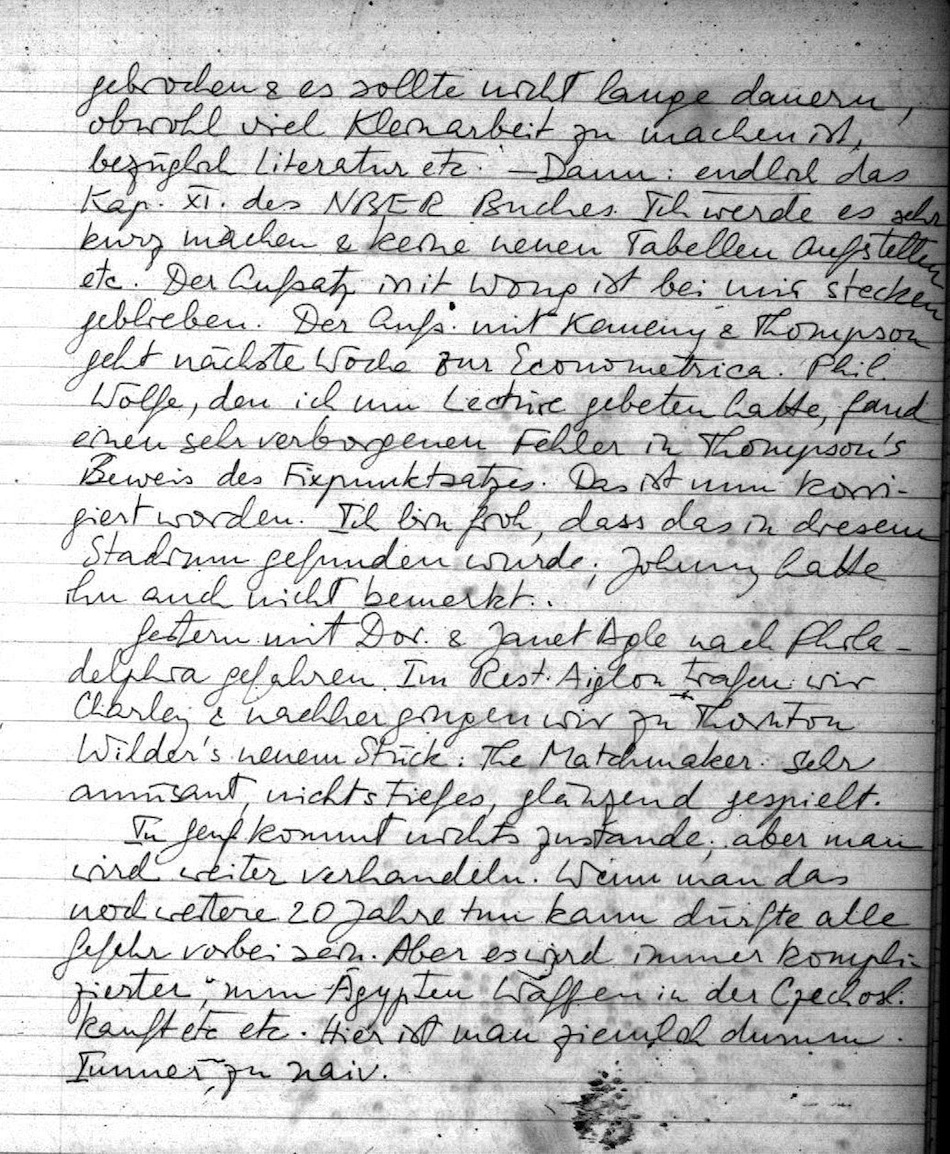 gebrochen & es sollte nicht lange dauern,
obwohl viel Kleinarbeit zu machen ist,
bezüglich Literatur etc. – Dann: endlich das
Kap. XI. des NBER Buches. Ich werde es sehr
kurz machen & keine neuen Tabellen aufstellen
etc. Der Aufsatz mit Wong ist bei mir stecken
geblieben. Der Aufs. mit Kemeny & Thompson
geht nächste Woche zur Econometrica. Phil.
Wolfe, den ich um Lectüre gebeten hatte, fand
einen sehr verborgenen Fehler in Thompson's
Beweis des Fixpunktsatzes. Das ist nun korri-
giert worden. Ich bin froh, dass das in diesem
Stadium gefunden wurde; Johnny hatte
ihn auch nicht bemerkt.
Gestern mit Dor. & Janet Agle nach Phila-
delphia gefahren. Im Rest. Aiglon trafen wir
Charley & nachher gingen wir zu Thornton
Wilder's neuem Stück: The Matchmaker. Sehr
amüsant, nichts Tiefes, glänzend gespielt.
In Genf kommt nichts zustande, aber man
wird weiter verhandeln. Wenn man das
noch weitere 20 Jahre tun kann dürfte alle
Gefahr vorbei sein. Aber es wird immer kompli-
zierter, nun Ägypten Waffen in der Czechosl.
kauft etc etc. Hier ist man ziemlich dumm.
Immer zu naiv.